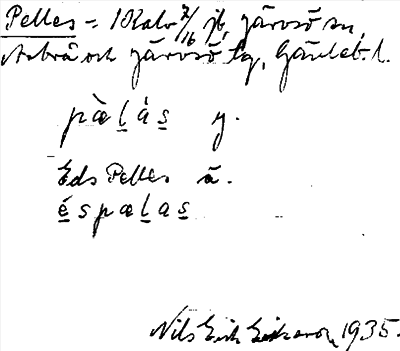 Pelles = 1 Kalv 7/16 jb, Järvsö sn,
Arbrå och Järvsö tg, Gävleb. l.
pæ̀lás y.
Eds Pelles ä.
éspælas
Nils Erik Eriksson, 1935.